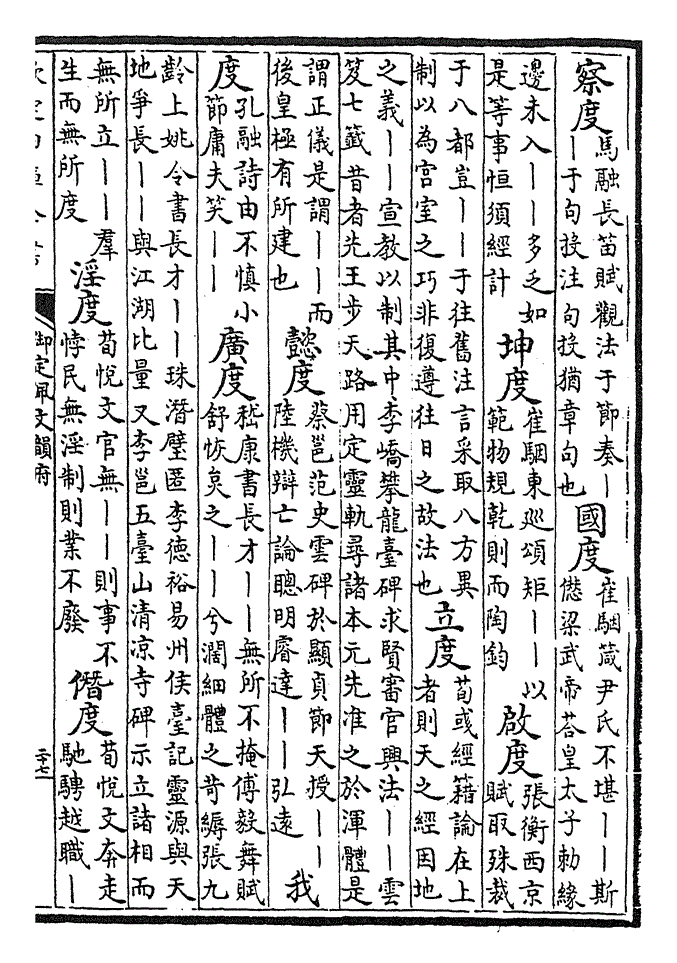 察度 馬融長笛賦觀法于節奏丨
丨于句投注句投猶章句也
國度 崔駰箴尹氏不堪丨丨斯
㦧梁武帝荅皇太子勅緣
邊未入丨丨多乏如
是等事恒須經計
坤度 崔駰東廵頌矩丨丨以
範物規乾則而陶鈞
啟度 張衡西京
賦取殊裁
于八都豈丨丨于往舊注言采取八方異
制以為宫室之巧非復遵往日之故法也
立度 荀彧經籍論在上
者則天之經因地
之義丨丨宣教以制其中李嶠攀龍臺碑求賢審官興法丨丨雲
笈七籖昔者先王步天路用定靈軌尋諸本元先准之於渾體是
謂正儀是謂丨丨而
後皇極有所建也
懿度 蔡邕范史雲碑於顯貞節天授丨丨
陸機辯亡論聰明睿達丨丨弘遠
我
度 孔融詩由不慎小
節庸夫笑丨丨
廣度 嵇康書長才丨丨無所不掩傅毅舞賦
舒恢炱之丨丨兮濶細體之苛縟張九
齡上姚令書長才丨丨珠潛璧匿李德裕易州侯臺記靈源與天
地爭長丨丨與江湖比量又李邕五臺山清凉寺碑示立諸相而
無所立丨丨羣
生而無所度
淫度 荀悦文官無丨丨則事不
悖民無淫制則業不廢
僭度 荀悦文奔走
馳騁越職丨
御定佩文韻府
二十七